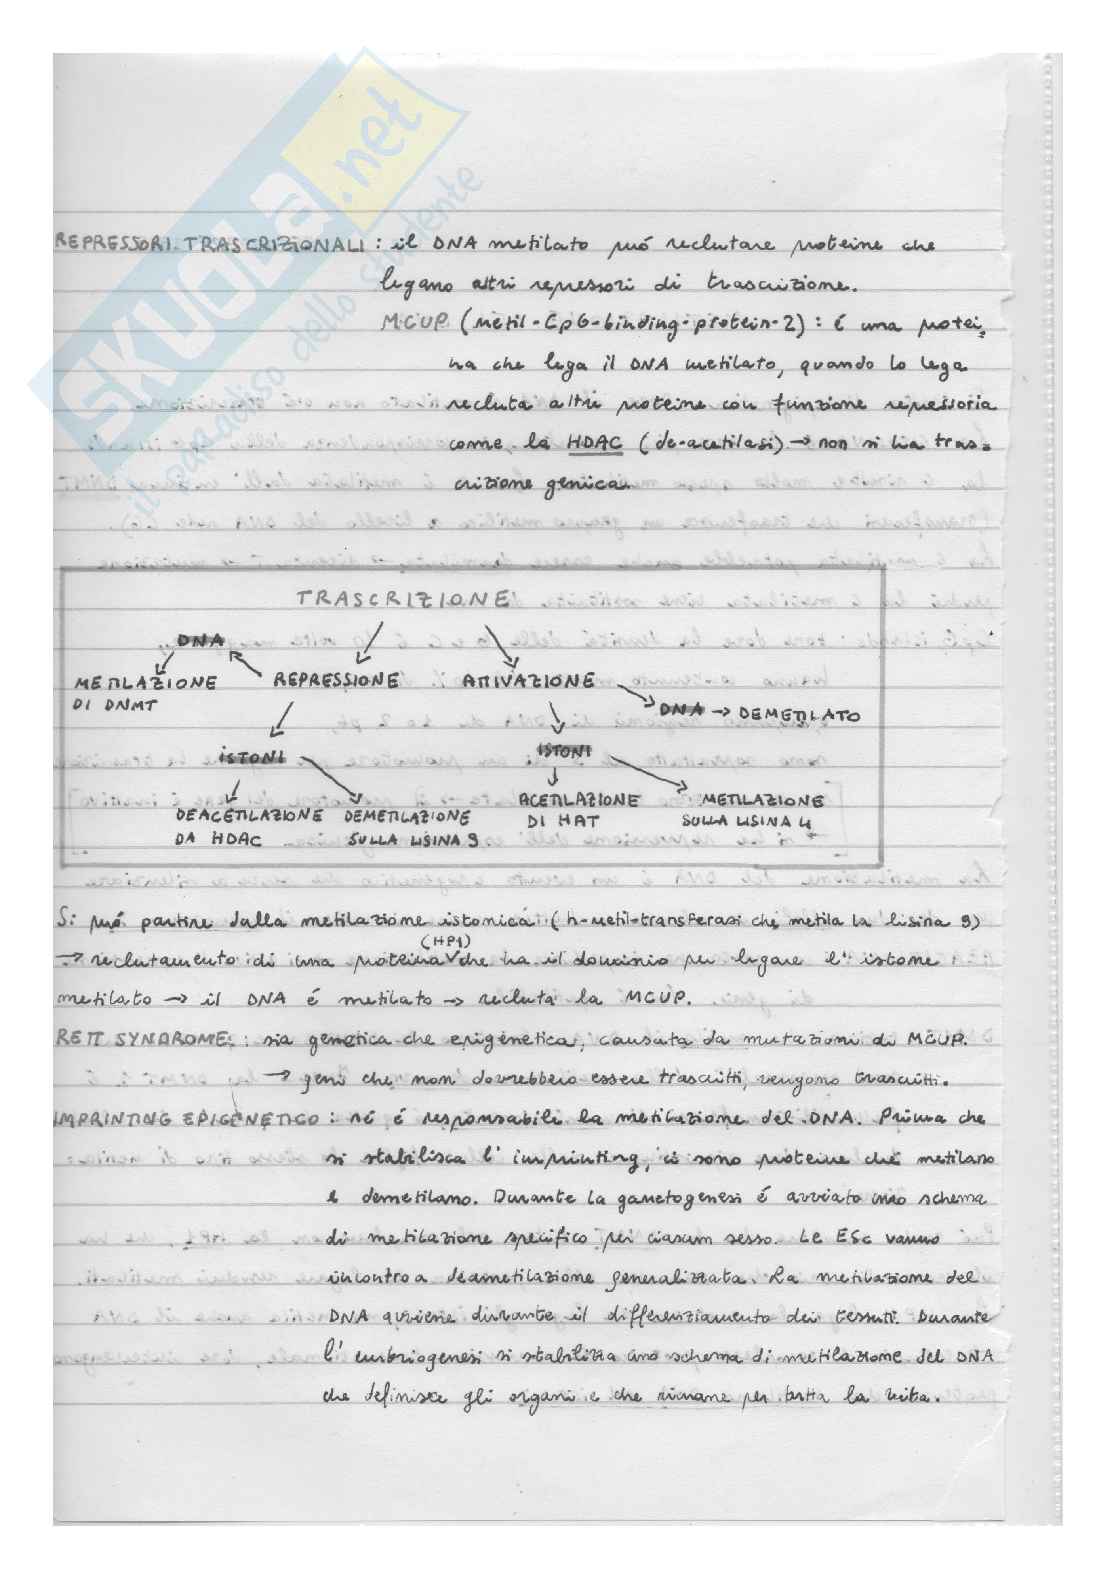 SKUOLA.net
il paradiso dello studente
REPRESSORI TRASCRIZIONALI : il DNA metilato può reclutare proteine che
legano altri repressori di trascrizione.
MCUP (metil-CpG-binding-protein-2) : é una protei
na che lega il DNA metilato, quando lo lega
recluta altre proteine con funzione repressoria
come la HDAC (de-acetilasi) → non si ha tras-
crizione genica.
TRASCRIZIONE
DNA
METILAZIONE REPRESSIONE ATTIVAZIONE
DI DNMT
DNA → DEMETILATO
ISTONI ISTONI
DEACETILAZIONE DEMETILAZIONE ACETILAZIONE METILAZIONE
DA HDAC SULLA LISINA 9 DI HAT SULLA LISINA 4
Si può partire dalla metilazione istonica (h-metil-transferasi che metila la lisina 9)
(HP1)
→ reclutamento di una proteina che ha il dominio per legare l' istone
metilato → il DNA é metilato → recluta la MCUP.
RETT SYNDROME : sia genetica che epigenetica, causata da mutazioni di MCUP.
→ geni che non dovrebbero essere trascritti, vengono trascritti.
IMPRINTING EPIGENETICO : né é responsabile la metilazione del DNA. Prima che
si stabilisca l' imprinting, ci sono proteine che metilano
e demetilano. Durante la gametogenesi é avviato uno schema
di metilazione specifico per ciascun sesso. Le ESc vanno
incontro a deametilazione generalizzata. La metilazione del
DNA avviene durante il differenziamento dei tessuti. Durante
l' embriogenesi si stabilizza uno schema di metilazione del DNA
che definisce gli organi e che rimane per tutta la vita.